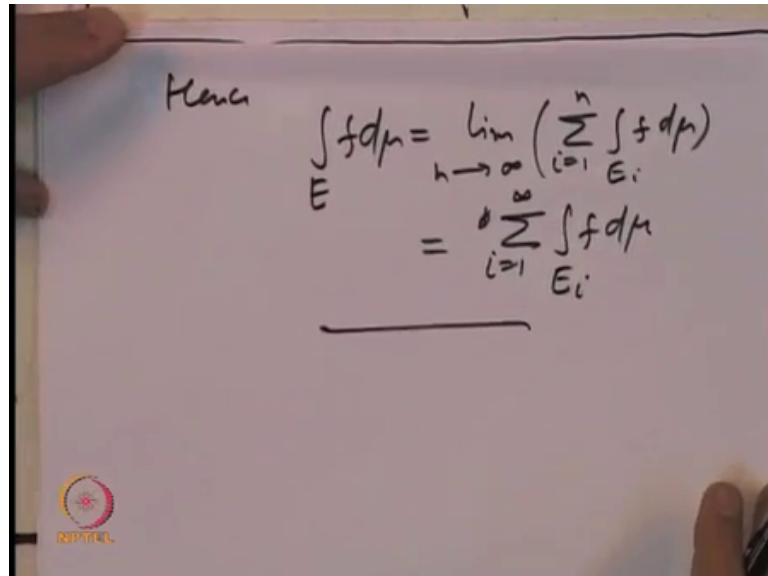 Hence
∫_E f dμ = lim_{n → ∞} ( ∑_{i=1}^{n} ∫_{E_i} f dμ )
= ∑_{i=1}^{∞} ∫_{E_i} f dμ
NPTEL